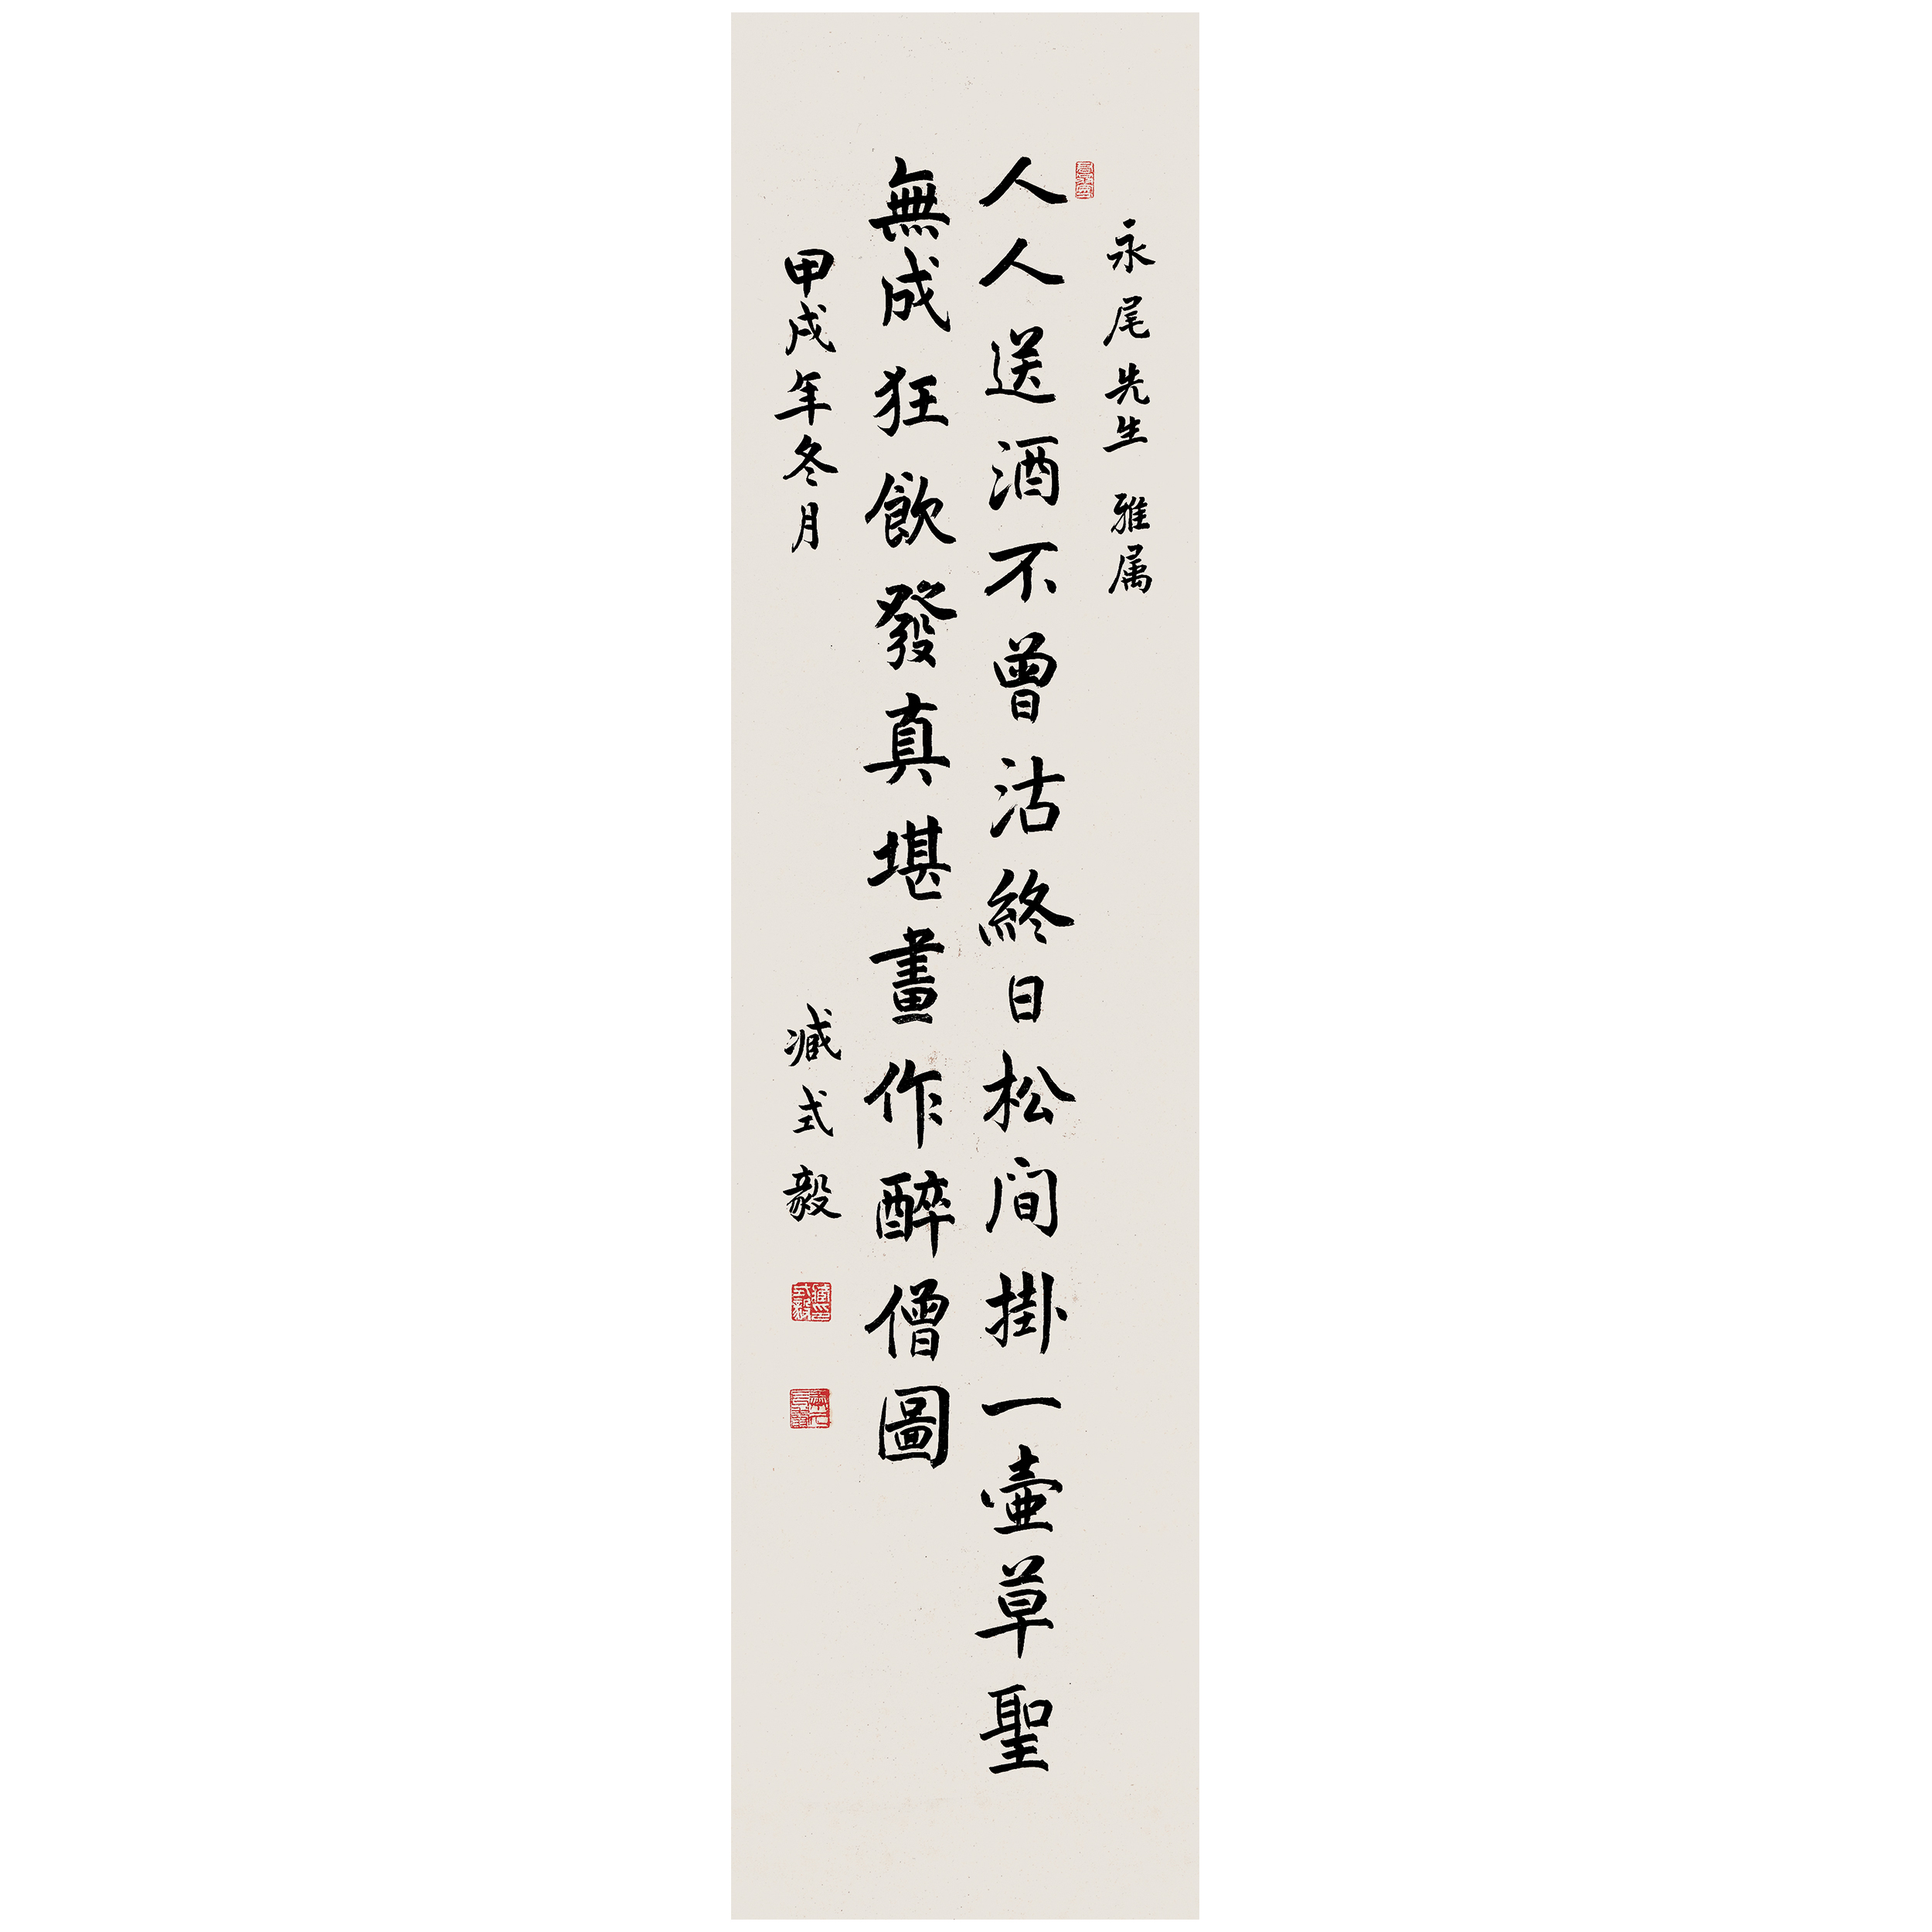 永尾先生 雅属
人人送酒不曾沽終日松间掛一壺草聖
無成狂飲發真堪畫作醉僧圖
甲戌年冬月 臧式毅
臧式毅印